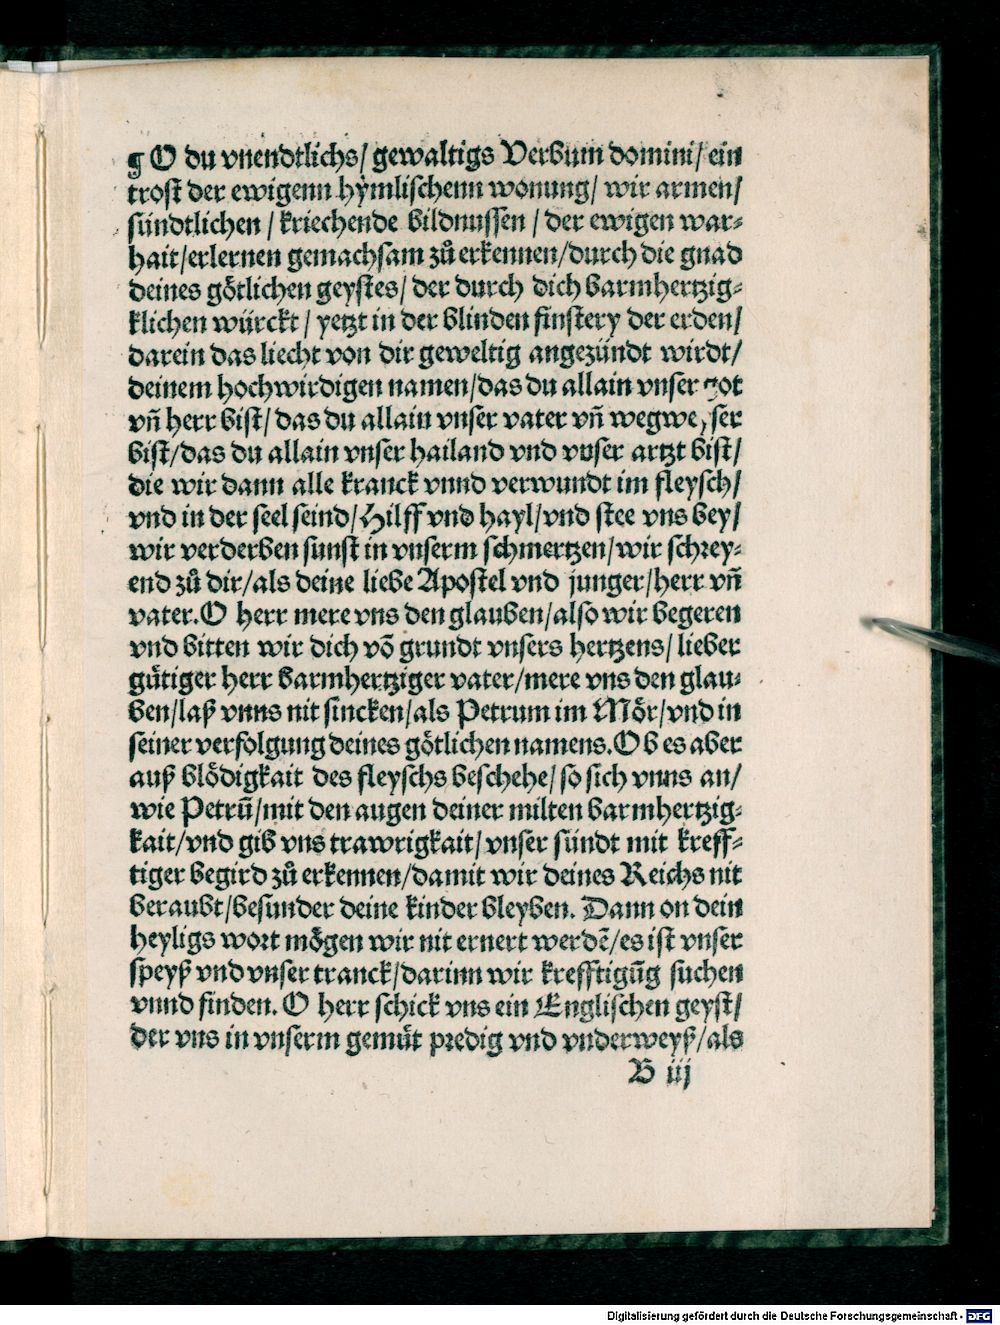 ¶ O du vnendtlichs/ gewaltigs Verbum domini/ ein
trost der ewigenn hymlischenn wonung/ wir armen/
sündtlichen / kriechende bildnussen / der ewigen war⸗
hait/erlernen gemachsam zů erkennen/durch die gnad
deines götlichen geystes/ der durch dich barmhertzig⸗
klichen würckt/ yetzt in der blinden finstery der erden/
darein das liecht von dir geweltig angezündt wirdt/
deinem hochwirdigen namen/das du allain vnser got
vn̄ herr bist/ das du allain vnser vater vn̄ wegweyser
bist/das du allain vnser hailand vnd vnser artzt bist/
die wir dann alle kranck vnnd verwundt im fleysch/
vnd in der seel seind/Hilff vnd hayl/vnd stee vns bey/
wir verderben sunst in vnserm schmertzen/wir schrey⸗
end zů dir/als deine liebe Apostel vnd junger/herr vn̄
vater.O herr mere vns den glauben/also wir begeren
vnd bitten wir dich vō grundt vnsers hertzens/ lieber
gütiger herr barmhertziger vater/mere vns den glau⸗
ben/laß vnns nit sincken/als Petrum im Mör/vnd in
seiner verfolgung deines götlichen namens.Ob es aber
auß blödigkait des fleyschs beschehe/ so sich vnns an/
wie Petrū/mit den augen deiner milten barmhertzig⸗
kait/vnd gib vns trawrigkait/vnser sündt mit kreff⸗
tiger begird zů erkennen/damit wir deines Reichs nit
beraubt/besunder deine kinder bleyben. Dann on dein
heyligs wort mögen wir nit ernert werdē/es ist vnser
speyß vnd vnser tranck/darinn wir krefftigūg suchen
vnnd finden. O herr schick vns ein Englischen geyst/
der vns in vnserm gemüt predig vnd vnderweyß/als
B iij
Digitalisierung gefördert durch die Deutsche Forschungsgemeinschaft - DFG